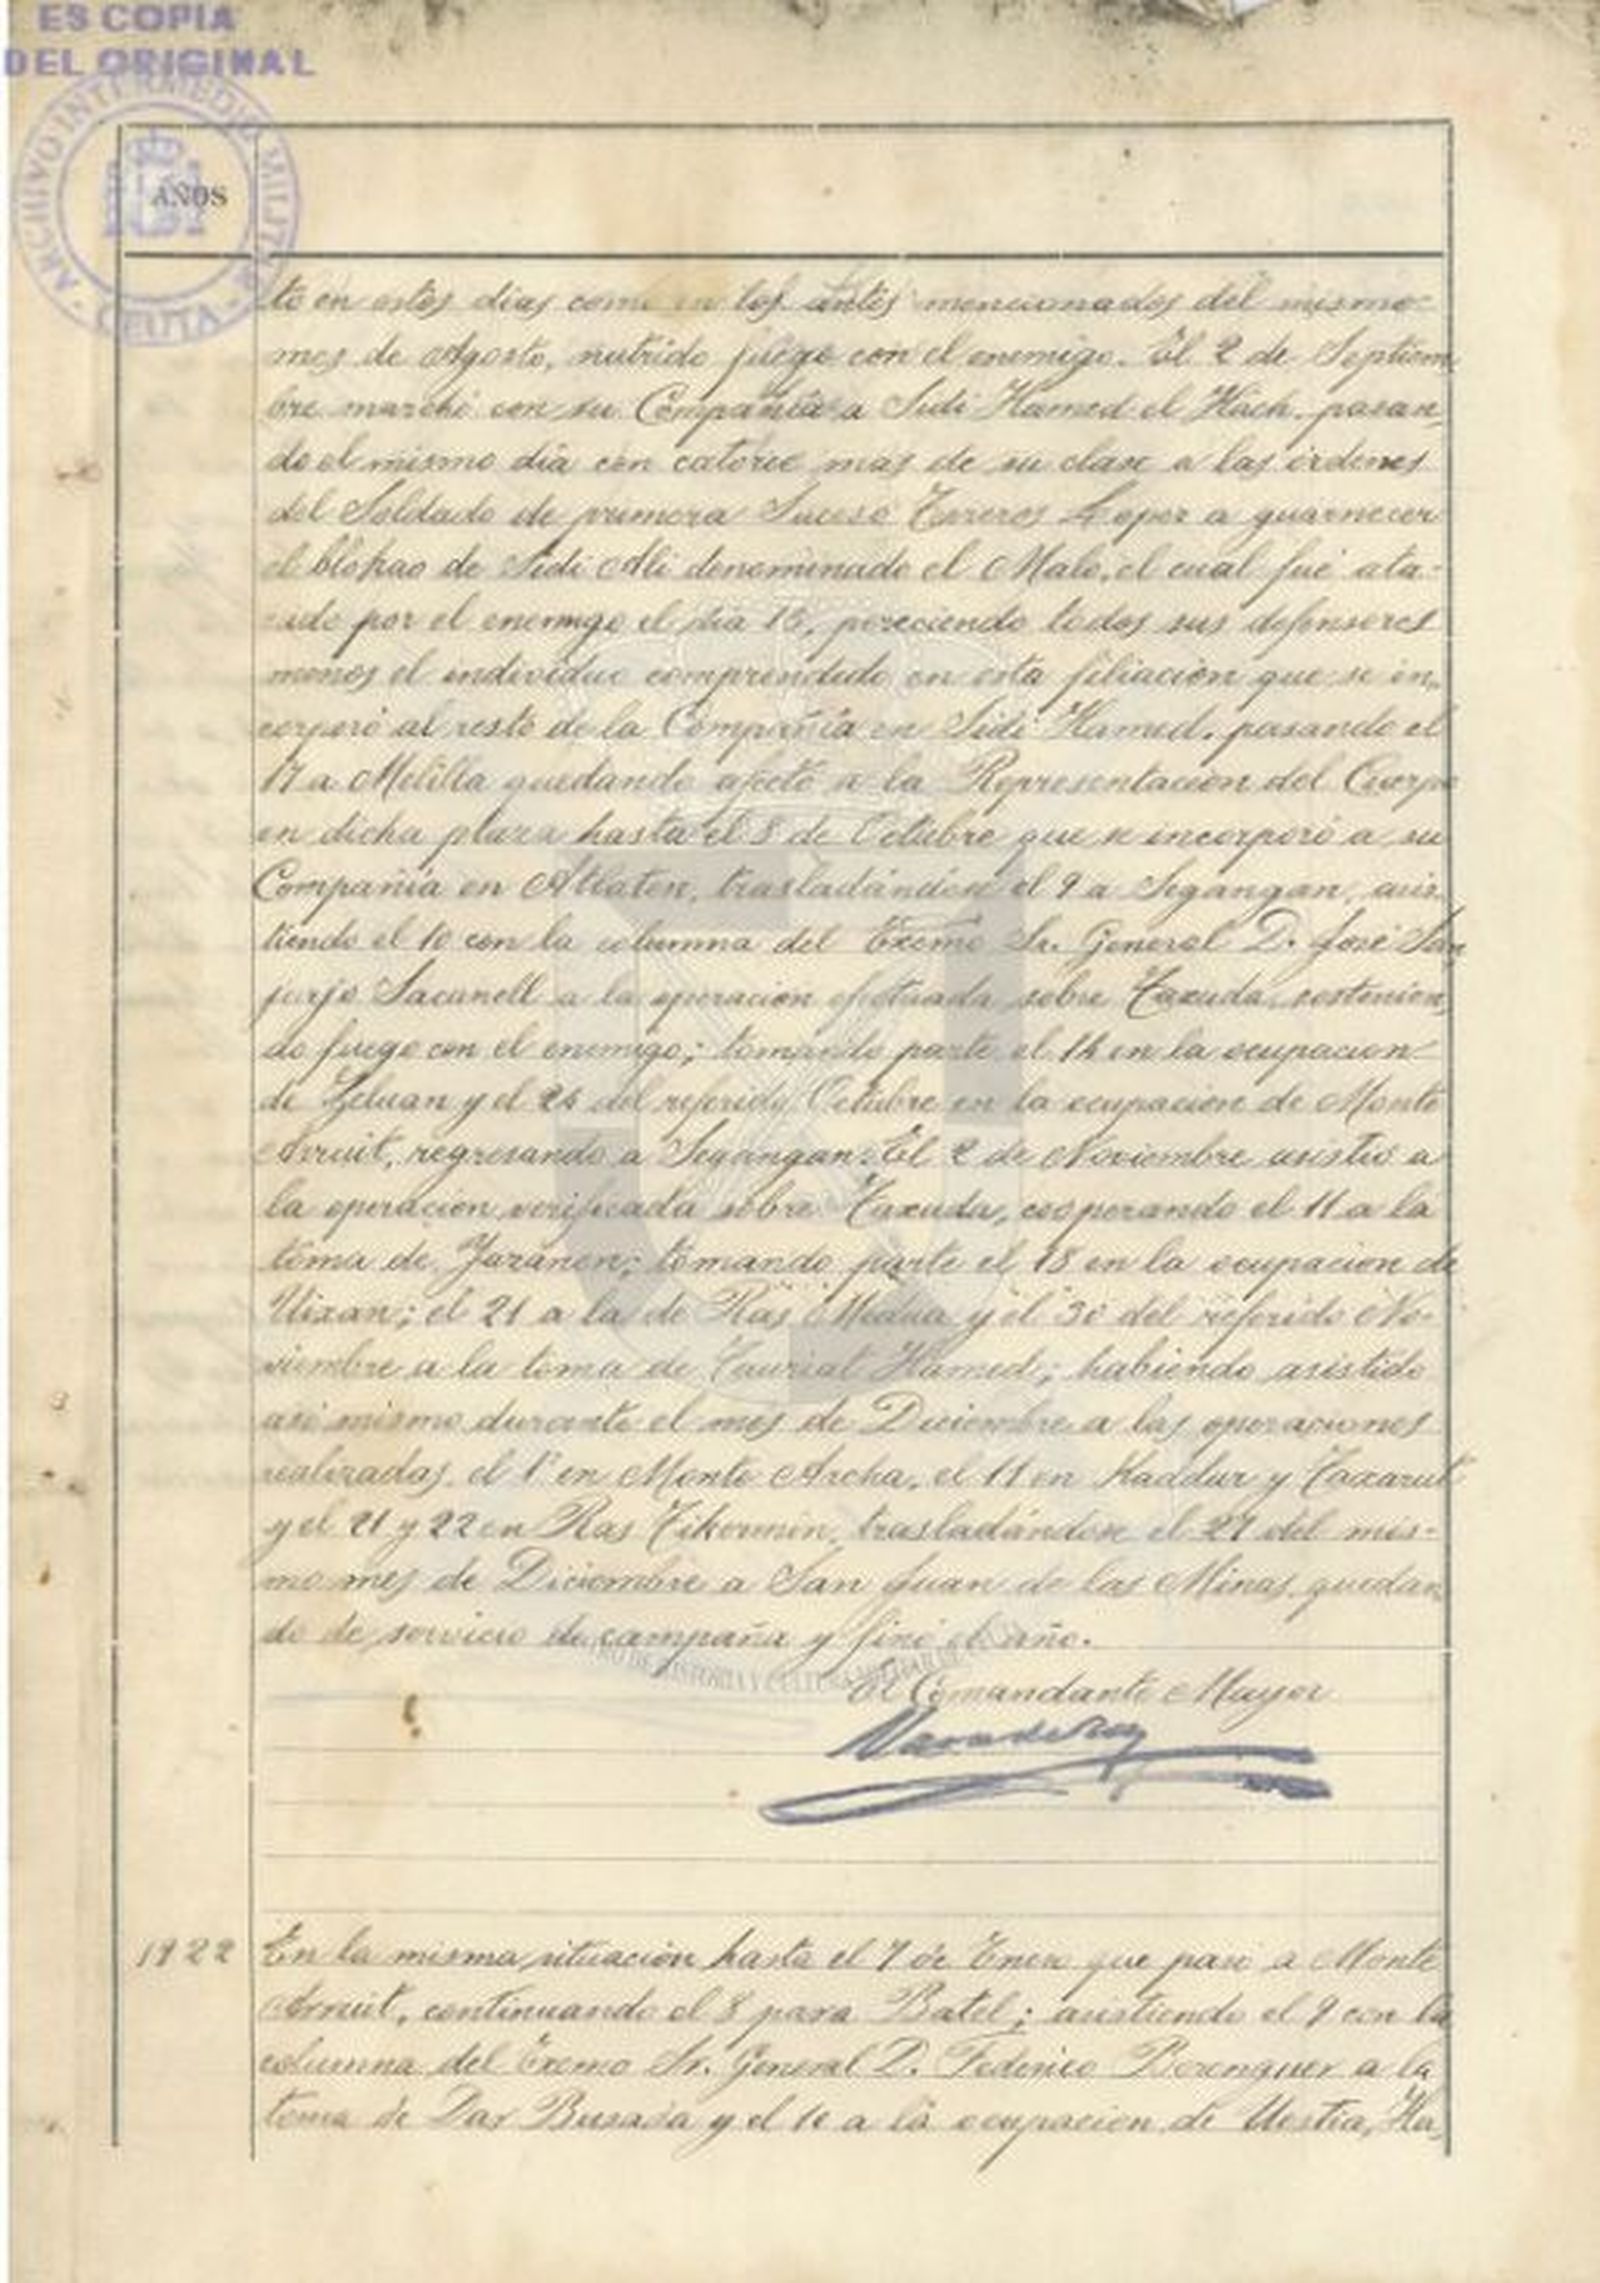 ES COPIA
DEL ORIGINAL
ARCHIVO INTERMEDIO MILITAR · CEUTA ·
AÑOS
to en estos dias como en los antes mencionados del mismo
mes de Agosto, nutrido fuego con el enemigo. El 2 de Septiem
bre marchó con su Compañía a Sidi Hamed el Hach, pasan
do el mismo día con catorce mas de su clase a las órdenes
del Soldado de primera Suceso Terreros Lopez a guarnecer
el blokao de Sidi Ali denominado el Malo, el cual fué ata-
cado por el enemigo el dia 15, pereciendo todos sus defensores
menos el individuo comprendido en esta filiación que se in
corporó al resto de la Compañía en Sidi Hamed, pasando el
17 a Melilla quedando afecto a la Representacion del Cuerpo
en dicha plaza hasta el 8 de Octubre que se incorporó a su
Compañía en Atlaten, trasladándose el 9 a Segangan, asis-
tiendo el 10 con la columna del Excmo Sr. General D. José San
jurjo Sacanell a la operación efectuada sobre Taxuda, sostenien
do fuego con el enemigo; tomando parte el 14 en la ocupacion
de Zeluan y el 24 del referido Octubre en la ocupacion de Monte
Arruit, regresando a Segangan. El 2 de Noviembre asistió a
la operación verificada sobre Taxuda, cooperando el 11 a la
toma de Yazanen; tomando parte el 18 en la ocupacion de
Uixan; el 21 a la de Ras Medua y el 30 del referido No-
viembre a la toma de Tauriat Hamed; habiendo asistido
asi mismo durante el mes de Diciembre a las operaciones
realizadas, el 1º en Monte Archa, el 11 en Kaddur y Taxarut
y el 21 y 22 en Ras Tikermin, trasladándose el 27 del mis-
mo mes de Diciembre a San Juan de las Minas, quedan
do de servicio de campaña y finó el año.
El Comandante Mayor
1922 En la misma situación hasta el 7 de Enero que pasó a Monte
Arruit, continuando el 8 para Batel; asistiendo el 9 con la
columna del Excmo Sr. General D. Federico Berenguer a la
toma de Dar Busada y el 10 a la ocupacion de Uestia, Ha